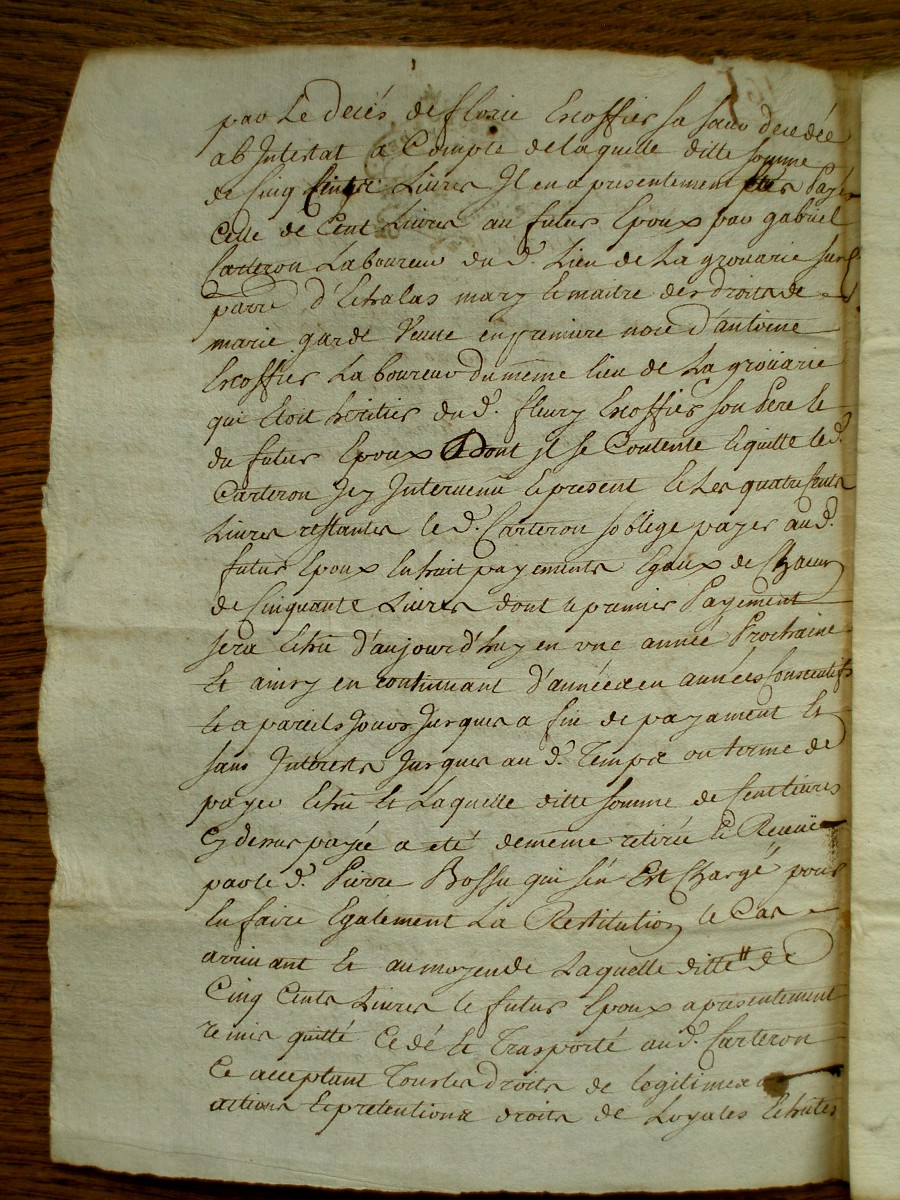 par Le decés de fleurie Escoffier sa sœur decedée
ab Intestat a Compte de laquelle ditte somme
de Cinq Cents Livres Il en a presentement été Payé
Celle de Cent Livres au futur Epoux par gabriel
Carteron Laboureur du d. Lieu de La grouarie sur
parre d'Echalas mary et maitre des droits de
marie garde Veuve en premiere noce d'antoine
Escoffier Laboureur du même lieu de La groüarie
qui étoit héritier du d. fleury Escoffier son Pere et
du futur Epoux Dont il se Contente et quitte le d.
Carteron Icy Intervenu et present et Les quatre Cents
Livres restantes le d. Carteron soblige payer au d.
futur Epoux En huit payements Egaux de Chacun
de Cinquante Livres dont le premier Payement
sera Echu d'aujourd'huy en une année Prochaine
Et ainsy en continuant d'années en années Consecutifs
et a pareils Jours Jusques a fin de payement Et
sans Interests Jusques au d. Temps ou terme de
payer Echu Et Laquelle ditte somme de Cent Livres
Cy dessus payée a eté de même retirée et Receuë
par le d. Pierre Bossu qui s'en Est Chargé pour
En faire Egalement La Restitution le Cas
arrivant Et au moyen de Laquelle ditte # de
Cinq Cents Livres le futur Epoux a presentement
remis quitté Cedé et Trasporté au d. Carteron
Ce acceptant Tous les droits de legitime
actions Et pretentions droits de Loyales Echutes